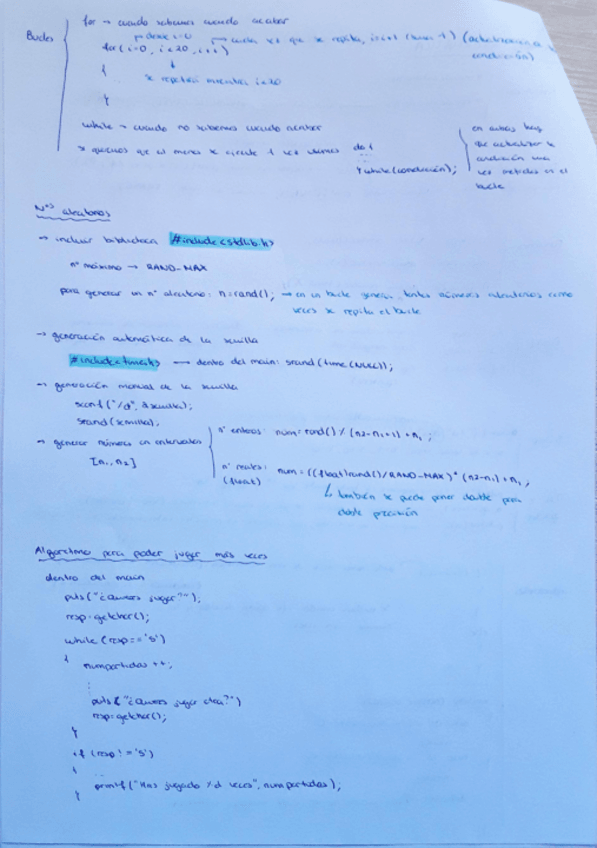 Bucles
for → cuando sabemos cuando acabar
desde i=0 → cada vez que se repita, i=i+1 (suma 1) (actualización de la condición)
for (i=0, i<20, i++)
{
se repetirá mientras i<20
}
while → cuando no sabemos cuando acabar
si queremos que al menos se ejecute 1 vez usamos do {
} while (condición);
en ambas hay
que actualizar la
condición una
vez metidos en el
bucle
Nos aleatorios
→ incluir biblioteca #include <stdlib.h>
nº máximo → RAND-MAX
para generar un nº aleatorio: n=rand(); → en un bucle genera tantos números aleatorios como
veces se repita el bucle
→ generación automática de la semilla
#include <time.h> → dentro del main: srand(time(NULL));
→ generación manual de la semilla
scanf("%d", &semilla);
srand(semilla);
→ generar números en intervalos
[n1, n2]
nº enteros: num=rand() % (n2-n1+1) + n1 ;
nº reales: num = ((float)rand()/RAND-MAX) * (n2-n1) + n1 ;
(float)
↳ también se puede poner double para
doble precisión
Algoritmo para poder jugar más veces
dentro del main
puts("¿Quieres jugar?");
resp=getchar();
while (resp=='S')
{
numpartidas ++;
⋮
puts("¿Quieres jugar otra?")
resp=getchar();
}
if (resp != 'S')
{
...
printf("Has jugado %d veces", numpartidas);
}